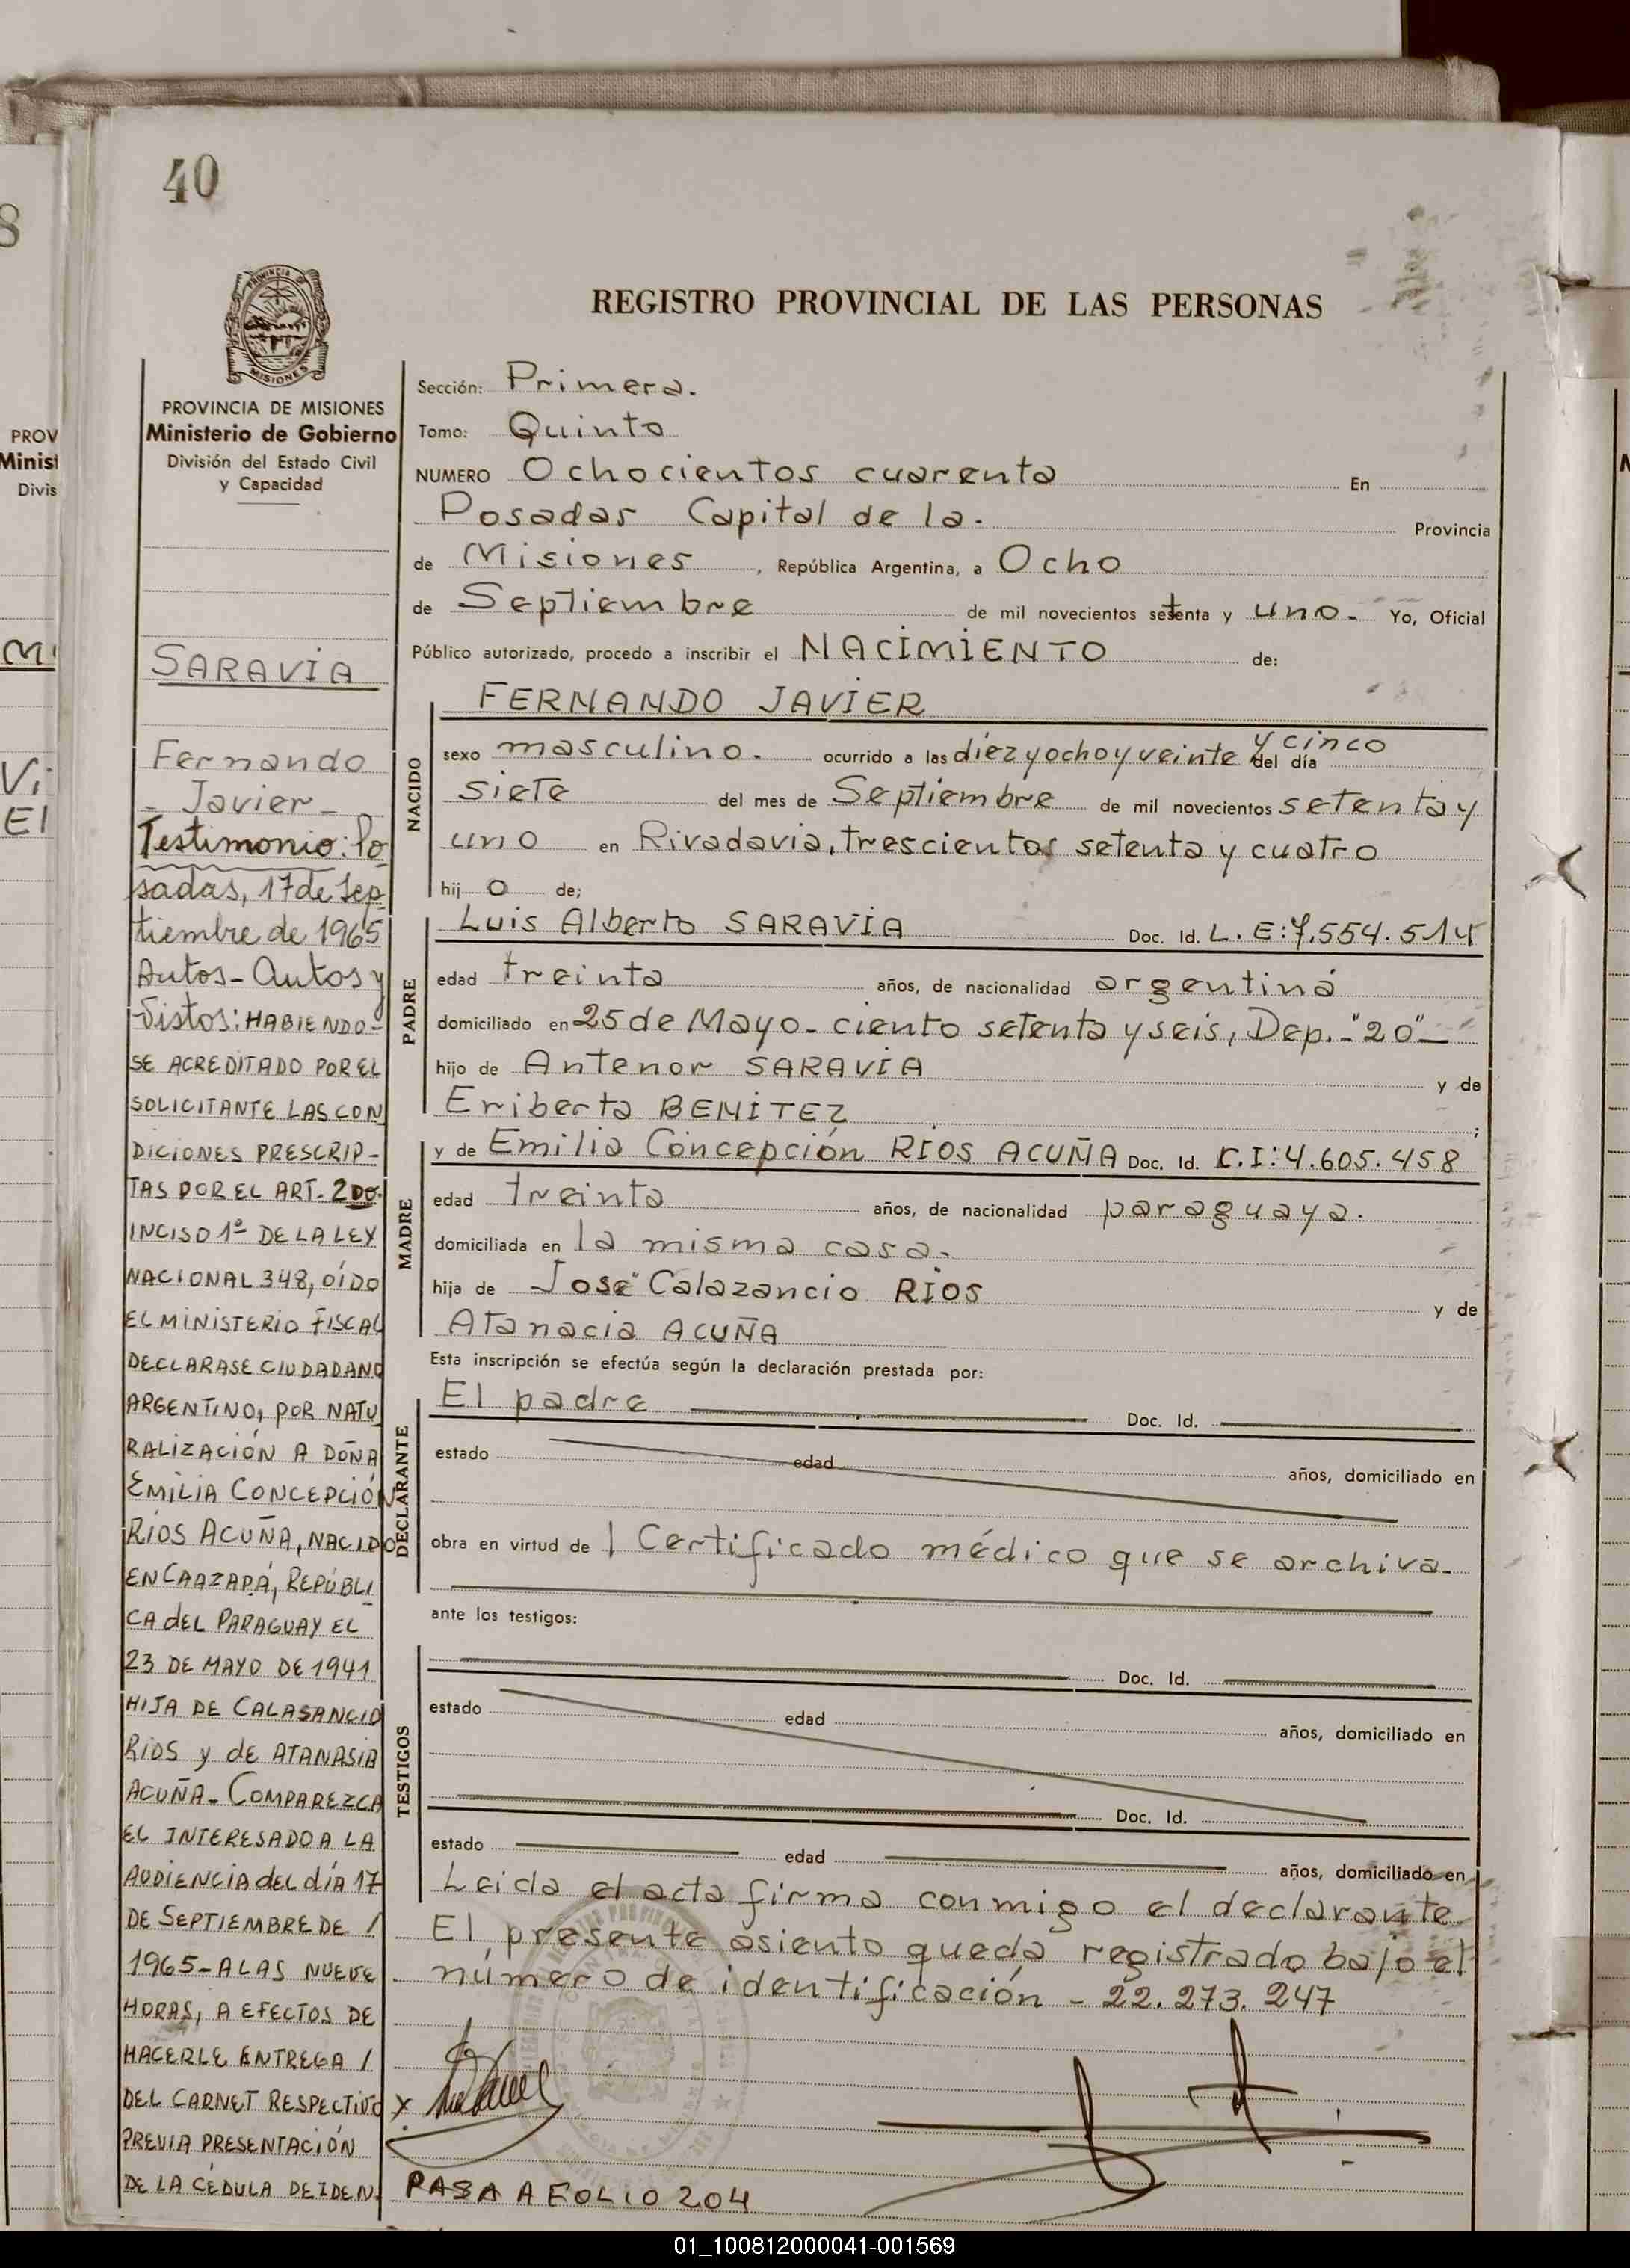 40
8
REGISTRO PROVINCIAL DE LAS PERSONAS
PROVINCIA DE MISIONES
Ministerio de Gobierno
División del Estado Civil
y Capacidad
SARAVIA
Fernando
- Javier -
Testimonio: Po
sadas, 17 de Sep-
tiembre de 1965
Autos - Autos y
Vistos: HABIENDO-
SE ACREDITADO POR EL
SOLICITANTE LAS CON
DICIONES PRESCRIP-
TAS POR EL ART. 2DO.
INCISO 1º DE LA LEY
NACIONAL 348, OÍDO
EL MINISTERIO FISCAL
DECLARASE CIUDADANO
ARGENTINO, POR NATU
RALIZACIÓN A DOÑA
EMILIA CONCEPCIÓN
RIOS ACUÑA, NACIDO
EN CAAZAPÁ, REPÚBLI
CA dEL PARAGUAY EL
23 DE MAYO DE 1941
HIJA DE CALASANCIO
RIOS y de ATANASIA
ACUÑA - COMPAREZCA
EL INTERESADO A LA
AUDIENCIA dEL dÍA 17
DE SEPTIEMBRE DE /
1965 - A LAS NUEVE
HORAS, A EFECTOS DE
HACERLE ENTREGA /
DEL CARNET RESPECTIVO
PREVIA PRESENTACIÓN
DE LA CÉDULA DE IDEN.
Sección: Primera.
Tomo: Quinto
NUMERO Ochocientos cuarenta En
Posadas Capital de la. Provincia
de Misiones, República Argentina, a Ocho
de Septiembre de mil novecientos setenta y uno. Yo, Oficial
Público autorizado, procedo a inscribir el NACIMIENTO de:
NACIDO
FERNANDO JAVIER
sexo masculino. ocurrido a las diez y ocho y veinte y cinco del día
siete del mes de Septiembre de mil novecientos setenta y
uno en Rivadavia, trescientos setenta y cuatro
hij o de;
PADRE
Luis Alberto SARAVIA Doc. Id. L. E: 7.554.514
edad treinta años, de nacionalidad argentina
domiciliado en 25 de Mayo - ciento setenta y seis, Dep. - "20" -
hijo de Antenor SARAVIA y de
Eriberta BENITEZ ;
MADRE
y de Emilia Concepción RIOS ACUÑA Doc. Id. C.I: 4.605.458
edad treinta años, de nacionalidad paraguaya.
domiciliada en la misma casa.
hija de José Calazancio RIOS y de
Atanacia ACUÑA
Esta inscripción se efectúa según la declaración prestada por:
DECLARANTE
El padre Doc. Id.
estado edad años, domiciliado en
obra en virtud de 1 Certificado médico que se archiva.
ante los testigos:
TESTIGOS
Doc. Id.
estado edad años, domiciliado en
Doc. Id.
estado edad años, domiciliado en
Leida el acta firma conmigo el declarante
El presente asiento queda registrado bajo el
número de identificación - 22.273.247
x
PASA A FOLIO 204
01_100812000041-001569